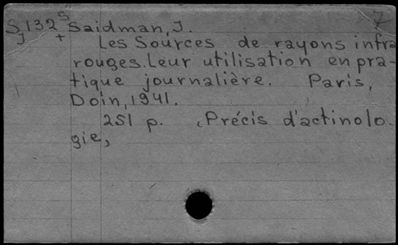 S132 S Saidman, J. 7
J +
Les Sources de rayons infra
rouges. Leur utilisation en pra-
tique journalière. Paris,
Doin, 1941.
251 p. (Précis d'actinolo
gie,